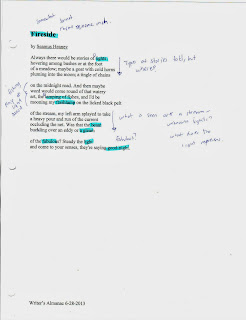 Fireside
by Seamus Heaney
Always there would be stories of lights
hovering among bushes or at the foot
of a meadow; maybe a goat with cold horns
pluming into the moon; a tingle of chains
on the midnight road. And then maybe
word would come round of that watery
art, the lamping of fishes, and I'd be
mooning my flashlamp on the licked black pelt
of the stream, my left arm splayed to take
a heavy pour and run of the current
occluding the net. Was that the beam
buckling over an eddy or a gleam
of the fabulous? Steady the light
and come to your senses, they're saying good-night.
Types of stories told, but
where?
what is seen over a stream -
what does the
light represent
fabulous?
Writer's Almanac 6-28-2013